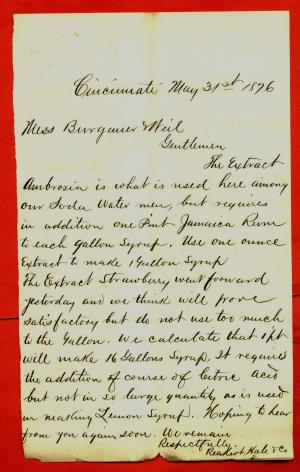 Cincinnati May 31st 1876
Mess Burgauer & Weil
Gentlemen
The Extract
Ambrosia is what is used here among
our Soda Water men, but requires
in addition one Pint Jamaica Rum
to each Gallon Syrup. Use one ounce
Extract to make 1 Gallon Syrup
The Extract Strawberry went forward
yesterday and we think will prove
satisfactory but do not use too much
to the Gallon. We calculate that 1 pt
will make 16 Gallons Syrup, It requires
the addition of course of Citric Acid
but not in so large quantity as is used
in making Lemon Syrup. Hoping to hear
from you again soon. We remain
Respectfully
Reakirt Hale & Co